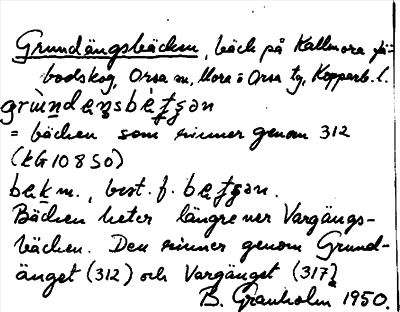 Grundängsbäcken, bäck på Kallmora fä=
bodskog, Orsa sn, Mora o Orsa tg, Kopparb. l.
grùndęnsbὲt̯şən
= bäcken som rinner genom 312
(KG 1085o)
bęk m., best. f. bęt̯şən.
Bäcken heter längre ner Vargängs-
bäcken. Den rinner genom Grund-
änget (312) och Vargänget (317).
B. Granholm 1950.